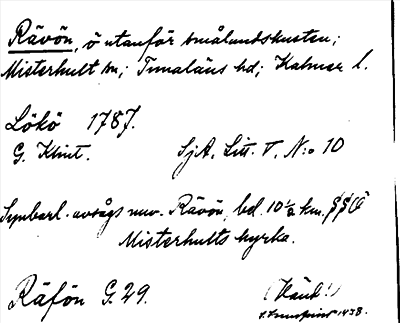 Rävön, ö utanför smålandskusten;
Misterhult sn; Tunaläns hd; Kalmar l.
Lökö 1787.
G. Klint. SjA. Litt. V. N:o 10
Synbarl. avsågs nuv. Rävön, bel. 10 ½ km. ÖSÖ
Misterhults kyrka.
Räfön G. 29.
(Händ!)
1938.